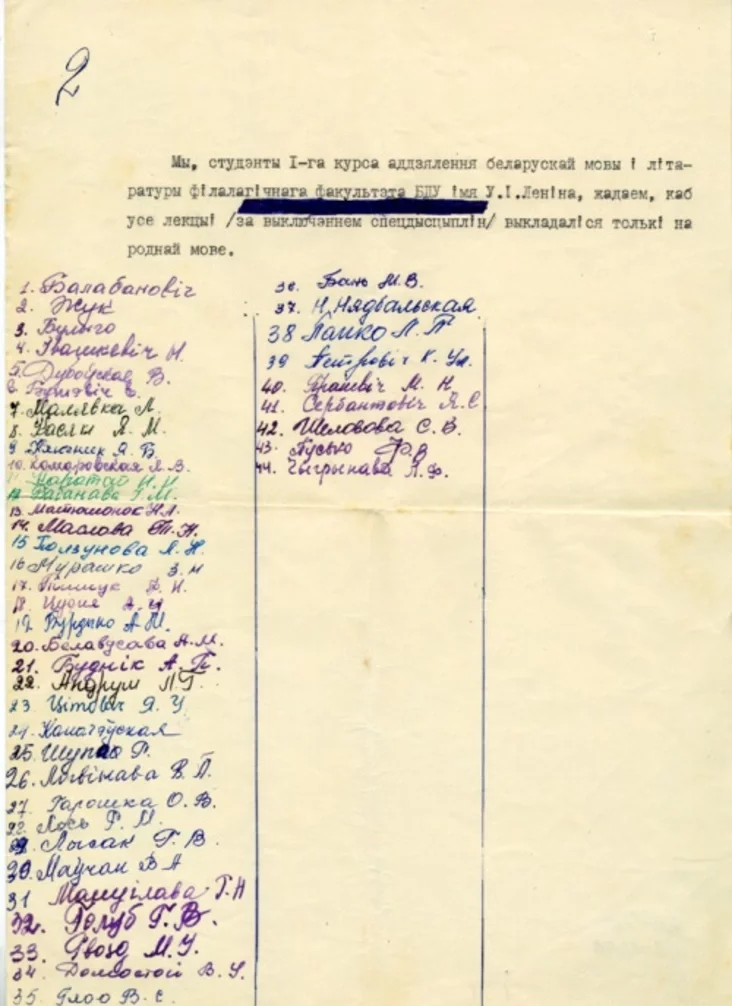 2
Мы, студэнты I-га курса аддзялення беларускай мовы і літа-
ратуры філалагічнага факультэта БДУ імя У.І.Леніна, жадаем, каб
усе лекцыі /за выключэннем спецдысцыплін/ выкладаліся толькі на
роднай мове.
1. Балабановіч
2. Жук
3. Булыго
4. Івашкевіч Н.
5. Дубоўская В.
6.
7. Малявка Л.
8. Касяк Я. М.
9 Я. В.
10. Комаровская Л. В.
11. Каратай Н. Н
12 Раганава Г. М.
13. Матюшонок Н. Л.
14. Маслова Т. Н.
15 Болзунова Л. Н.
16 Мурашко З. М
17. Н.
18.
19. Бурдыко А. М.
20. Белавусава А. М.
21. Буднік А. П.
22. Андруш Л Г.
23 Цітовіч Я. У
24.
25. Шупа Р.
26. Логвінава В. П.
27. Гарошка О. В.
28. Лось Р. М.
29. Лысак Г. В
30. Маўчан В А
31 Мануілава Г. Н
32. Голуб Г. В.
33. Гвозд М. У.
34. Долгостой В. У.
35. В. С.
36. Бань М. В.
37. Н. Нядвальская
38 Папко Л. П
39 Петровіч К. Ул.
40. М. Н
41. Сербантовіч Я. С
42. Шеловова С. В.
43. Пусько Ф. В
44. Чыгрынава Л. Ф.